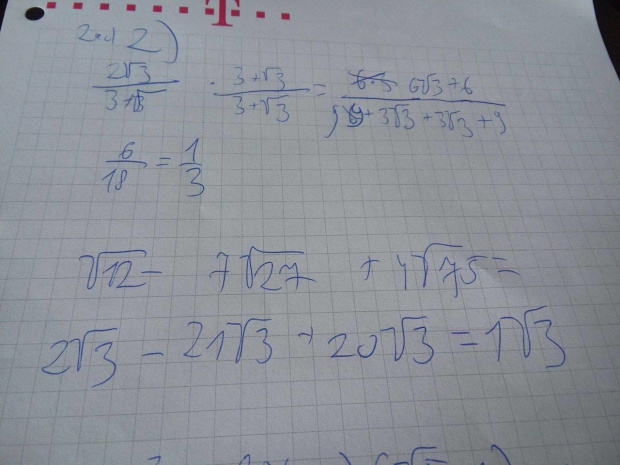 T
Zad 2)
2√3/3+√3 · 3+√3/3+√3 = 6√3+6/9+3√3+3√3+9
6/18 = 1/3
√12 - 7√27 + 4√75 =
2√3 - 21√3 + 20√3 = 1√3